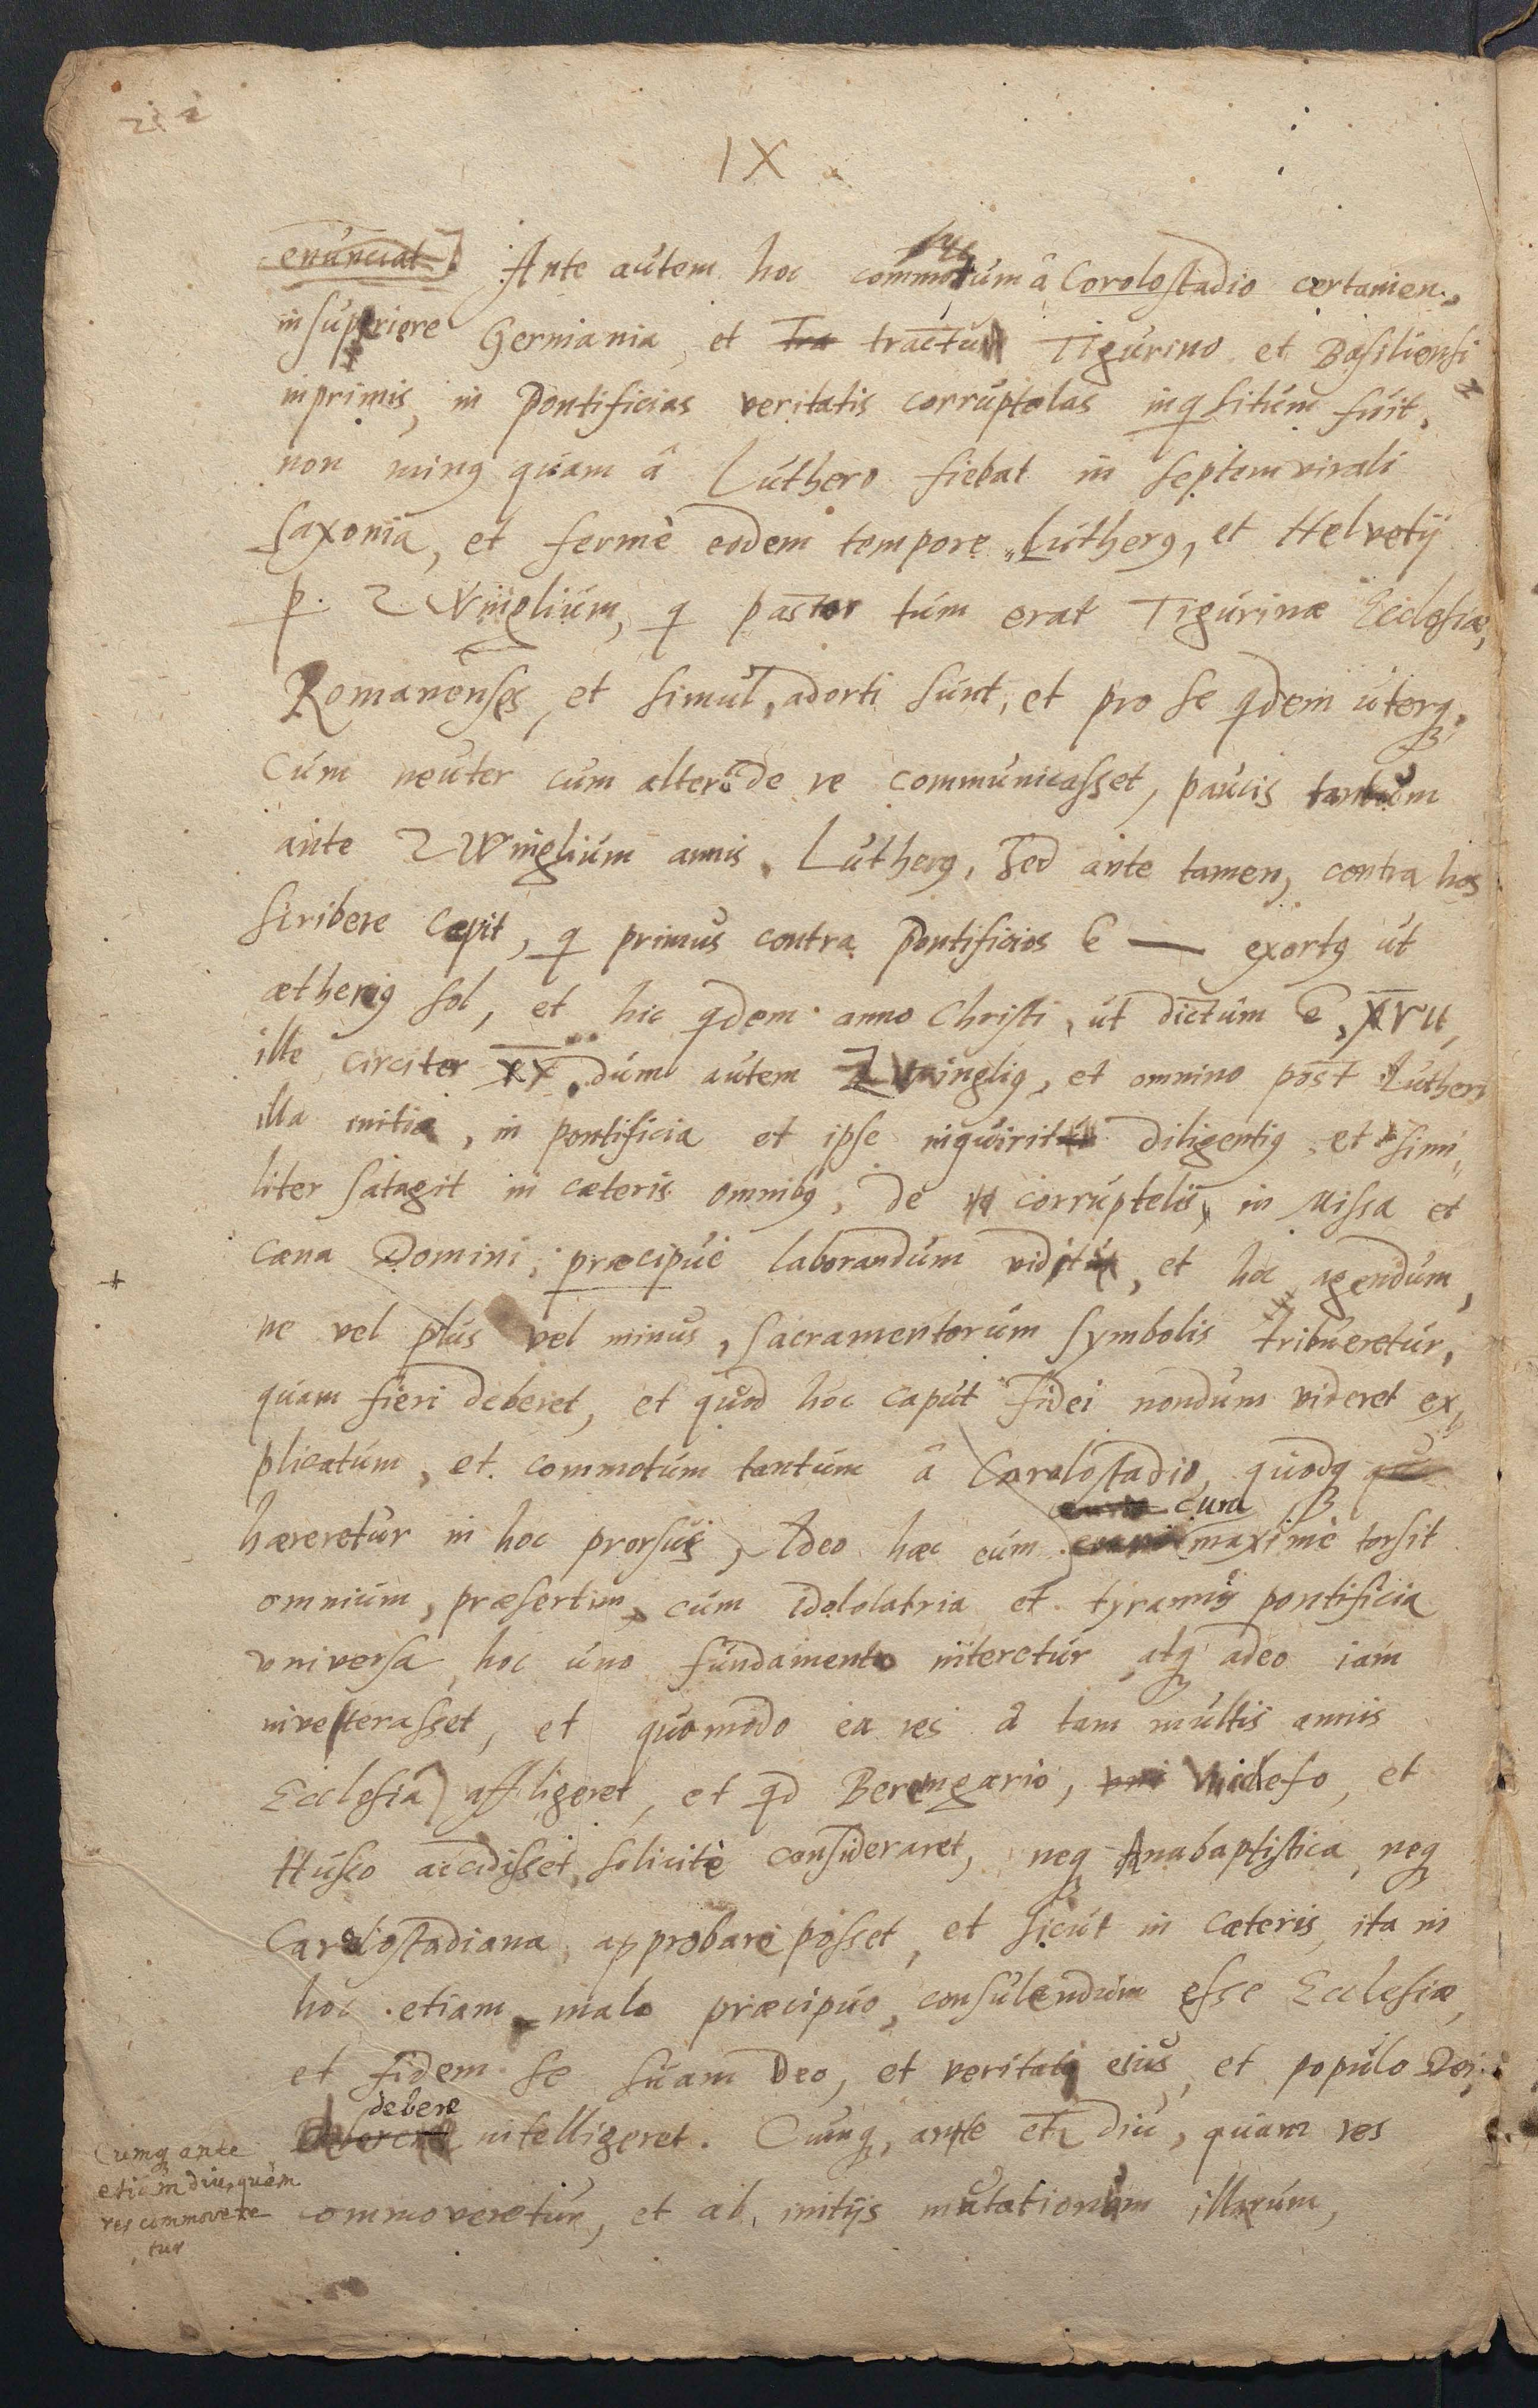 IX
enunciat] Ante autem hoc commotum â Carolostadio certamen,
in superiore Germania, et Tra tractu Tigurino et Basiliensi
inprimis, in Pontificias veritatis corruptelas inqsitum fuit,
non minꝰ quam â Luthero fiebat in septemvirali
Saxonia, et fermè eodem tempore Lutherꝰ, et Helvetij
p. ZWinglium, q pastor tum erat Tigurinæ Ecclesiæ,
Romanenses, et simul, adorti sunt, et pro se qdem uterqꝫ,
Cum neuter cum altero de re communicasset, paucis tantum
ante ZWinglium annis, Lutherꝰ, Sed ante tamen, contra hos
scribere cæpit, q primus contra Pontificios ē — exortꝰ ut
ætheriꝰ sol, et hic qdem anno Christi, ut dictum ē, XVII,
ille circiter XX, dum autem ZWingliꝰ, et omnino post Lutheri
illa initia, in pontificia et ipse inquirit diligentiꝰ, et simi„
liter satagit in cæteris omnibꝰ, de corruptelis, in Missa et
cæna Domini, præcipuè laborandum vidit, et hoc agendum,
ne vel plus vel minus, Sacramentorum symbolis tribueretur,
quam fieri deberet, et quod hoc caput Fidei nondum videret ex„
plicatum, et commotum tantum â Carolostadio, quodqꝫ
cum
hæreretur in hoc prorsus, Ideo hæc eum maximè torsit
omnium, præsertim, cum idololatria et tyrannis pontificia
universa, hoc uno fundamento niteretur, atqꝫ adeo iam
inveterasset, et quomodo ea res â tam multis annis
Ecclesiā affligeret, et qd Berengario, Viclefo, et
Husso accidisset, solicitè consideraret, neqꝫ Anabaptistica, neqꝫ
Carolostadiana, approbari posset, et sicut in cæteris, ita in
hoc etiam malo præcipuo, consulendum esse Ecclesiæ,
et fidem se suam Deo, et veritati eius, et populo Dei,
debere
intelligeret. Cumqꝫ, ante etꝫ diu, quam res
commoveretur, et ab initijs mutationum illarum,
Cumqꝫ ante
etiam diu, quàm
res commovere
tur